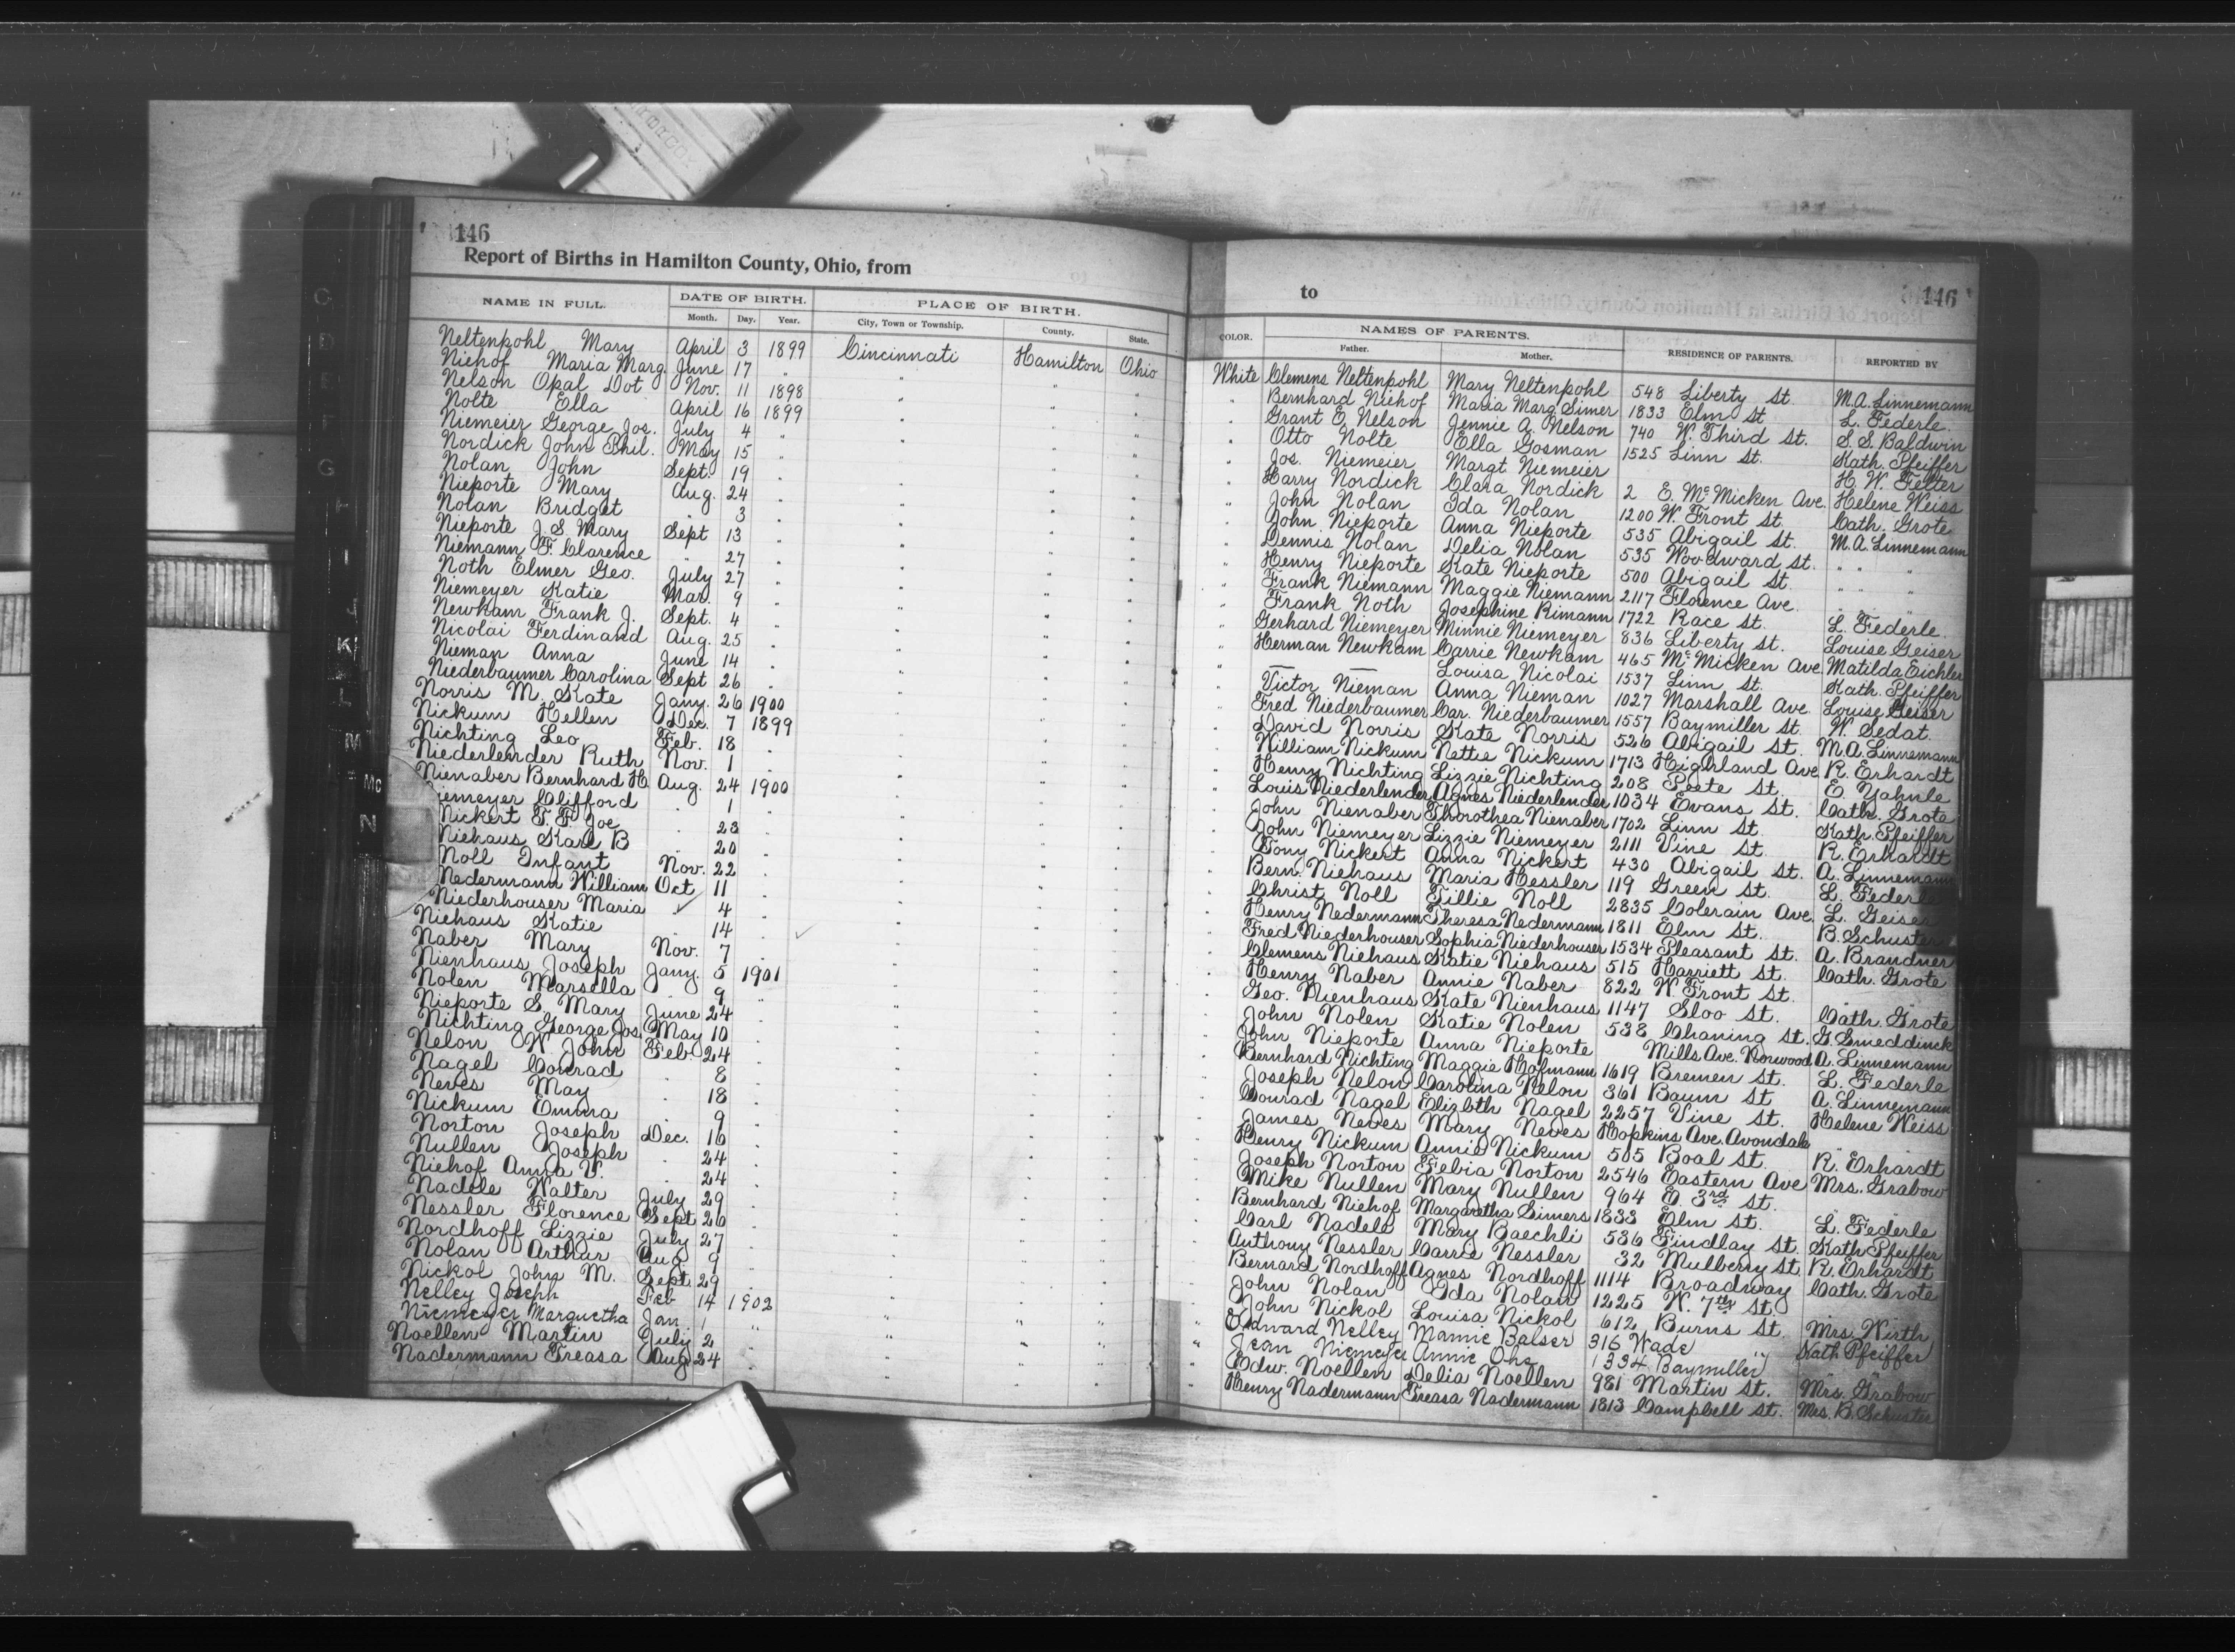 146
Report of Births in Hamilton County, Ohio, from
NAME IN FULL. DATE OF BIRTH. PLACE OF BIRTH.
Month. Day. Year. City, Town or Township. County. State.
Neltenpohl Mary April 3 1899 Cincinnati Hamilton Ohio
Niehof Maria Marg. June 17 "
Nelson Opal Dot Nov. 11 1898
Nolte Ella April 16 1899
Niemeier George Jos. July 4 "
Nordick John Phil. May 15 "
Nolan John Sept. 19 "
Nieporte Mary Aug. 24 "
Nolan Bridget " 3 "
Nieporte J. S. Mary Sept 13 "
Niemann F. Clarence " 27 "
Noth Elmer Geo. July 27 "
Niemeyer Katie Mar. 9 "
Newkam Frank J. Sept. 4 "
Nicolai Ferdinand Aug. 25 "
Nieman Anna June 14 "
Niederbaumer Carolina Sept 26 "
Norris M. Kate Jany. 26 1900
Nickum Hellen Dec. 7 1899
Nichting Leo Feb. 18 "
Niederlender Ruth Nov. 1 "
Nienaber Bernhard H. Aug. 24 1900
Niemeyer Clifford " 1 "
Nickert T. F. Joe " 23 "
Niehaus Karl B " 20 "
Noll Infant Nov. 22 "
Nedermann William Oct 11 "
Niederhouser Maria ✓ 4 "
Niehaus Katie " 14 " ✓
Naber Mary Nov. 7 "
Nienhaus Joseph Jany. 5 1901
Nolen Marsella " 9 "
Nieporte S. Mary June 24 "
Nichting George Jos. May 10 "
Nelon W. John Feb. 24 "
Nagel Conrad " 8 "
Neves May " 18 "
Nickum Emma " 9 "
Norton Joseph Dec. 16 "
Nullen Joseph " 24 "
Niehof Anna V. " 24 "
Nadele Walter July 29 "
Nessler Florence Sept 26 "
Nordhoff Lizzie July 27 "
Nolan Arthur Aug 9 "
Nickol John M. Sept. 29 "
Nelley Joseph Feb 14 1902
Niemeyer Margretha Jan. 1 "
Noellen Martin July 2 "
Nadermann Treasa Aug 24 "
to 146
COLOR. NAMES OF PARENTS. RESIDENCE OF PARENTS. REPORTED BY
Father. Mother.
White Clemens Neltenpohl Mary Neltenpohl 548 Liberty St. M.A. Linnemann
" Bernhard Niehof Maria Marg Simer 1833 Elm St L. Federle.
" Grant E. Nelson Jennie A. Nelson 740 W. Third St. S. S. Baldwin
" Otto Nolte Ella Gosman 1525 Linn St. Kath. Pfeiffer
" Jos. Niemeier Margt Niemeier H. W. Fielter
" Harry Nordick Clara Nordick 2 E. McMicken Ave. Helene Weiss
" John Nolan Ida Nolan 1200 W. Front St. Cath. Grote
" John Nieporte Anna Nieporte 535 Abigail St. M. A. Linnemann
" Dennis Nolan Delia Nolan 535 Woodward St. " " "
" Henry Nieporte Kate Nieporte 500 Abigail St. " " "
" Frank Niemann Maggie Niemann 2117 Florence Ave. " " "
" Frank Noth Josephine Rimann 1722 Race St. L. Federle.
" Gerhard Niemeyer Minnie Niemeyer 836 Liberty St. Louise Geiser
" Herman Newkam Carrie Newkam 465 McMicken Ave Matilda Eichler
" — — Louisa Nicolai 1537 Linn St. Kath. Pfeiffer
" Victor Nieman Anna Nieman 1027 Marshall Ave Louise Geiser
" Fred Niederbaumer Car. Niederbaumer 1557 Baymiller St. W. Sedat.
" David Norris Kate Norris 526 Abigail St. M.A. Linnemann
" William Nickum Nettie Nickum 1713 Highland Ave R. Erhardt
" Henry Nichting Lizzie Nichting 208 Peete St. E. Yahnle
" Louis Niederlender Agnes Niederlender 1034 Evans St. Cath. Grote
" John Nienaber Thorothea Nienaber 1702 Linn St. Kath. Pfeiffer
" John Niemeyer Lizzie Niemeyer 2111 Vine St. R. Erhardt
" Tony Nickert Anna Nickert 430 Abigail St. A. Linnemann
" Bern. Niehaus Maria Hessler 119 Green St. L. Federle
" Christ Noll Tillie Noll 2835 Colerain Ave. L. Geiser
" Henry Nedermann Theresa Nedermann 1811 Elm St. B. Schuster
" Fred Niederhouser Sophia Niederhouser 1534 Pleasant St. A. Brandner
" Clemens Niehaus Katie Niehaus 515 Harriett St. Cath. Grote
" Henry Naber Annie Naber 822 W. Front St. " "
" Geo. Nienhaus Kate Nienhaus 1147 Sloo St. Cath. Grote
" John Nolen Katie Nolen 538 Chaning St. G. Smeddinck
" John Nieporte Anna Nieporte Mills Ave. Norwood A. Linnemann
" Bernhard Nichting Maggie Hofmann 1619 Bremen St. L. Federle
" Joseph Nelon Carolina Nelon 361 Baum St A. Linnemann
" Conrad Nagel Elizbth Nagel 2257 Vine St. Helene Weiss
" James Neves Mary Neves Hopkins Ave. Avondale " "
" Henry Nickum Annie Nickum 505 Boal St. R. Erhardt
" Joseph Norton Febia Norton 2546 Eastern Ave Mrs. Grabow
" Mike Nullen Mary Nullen 964 E. 3rd St. " "
" Bernhard Niehof Margaretha Simers 1833 Elm St. L. Federle
" Carl Nadele Mary Baechli 536 Findlay St. Kath Pfeiffer
" Anthony Nessler Carrie Nessler 32 Mulberry St. R. Erhardt
" Bernard Nordhoff Agnes Nordhoff 1114 Broadway Cath. Grote
" John Nolan Ida Nolan 1225 W. 7th St. " "
" John Nickol Louisa Nickol 612 Burns St. Mrs. Wirth
" Edward Nelley Mamie Balser 316 Wade " Kath Pfeiffer
" Jean Niemeyer Annie Ohe 1334 Baymiller " "
" Edw. Noellen Delia Noellen 981 Martin St. Mrs. Grabow
" Henry Nadermann Treasa Nadermann 1813 Campbell St. Mrs. B. Schuster